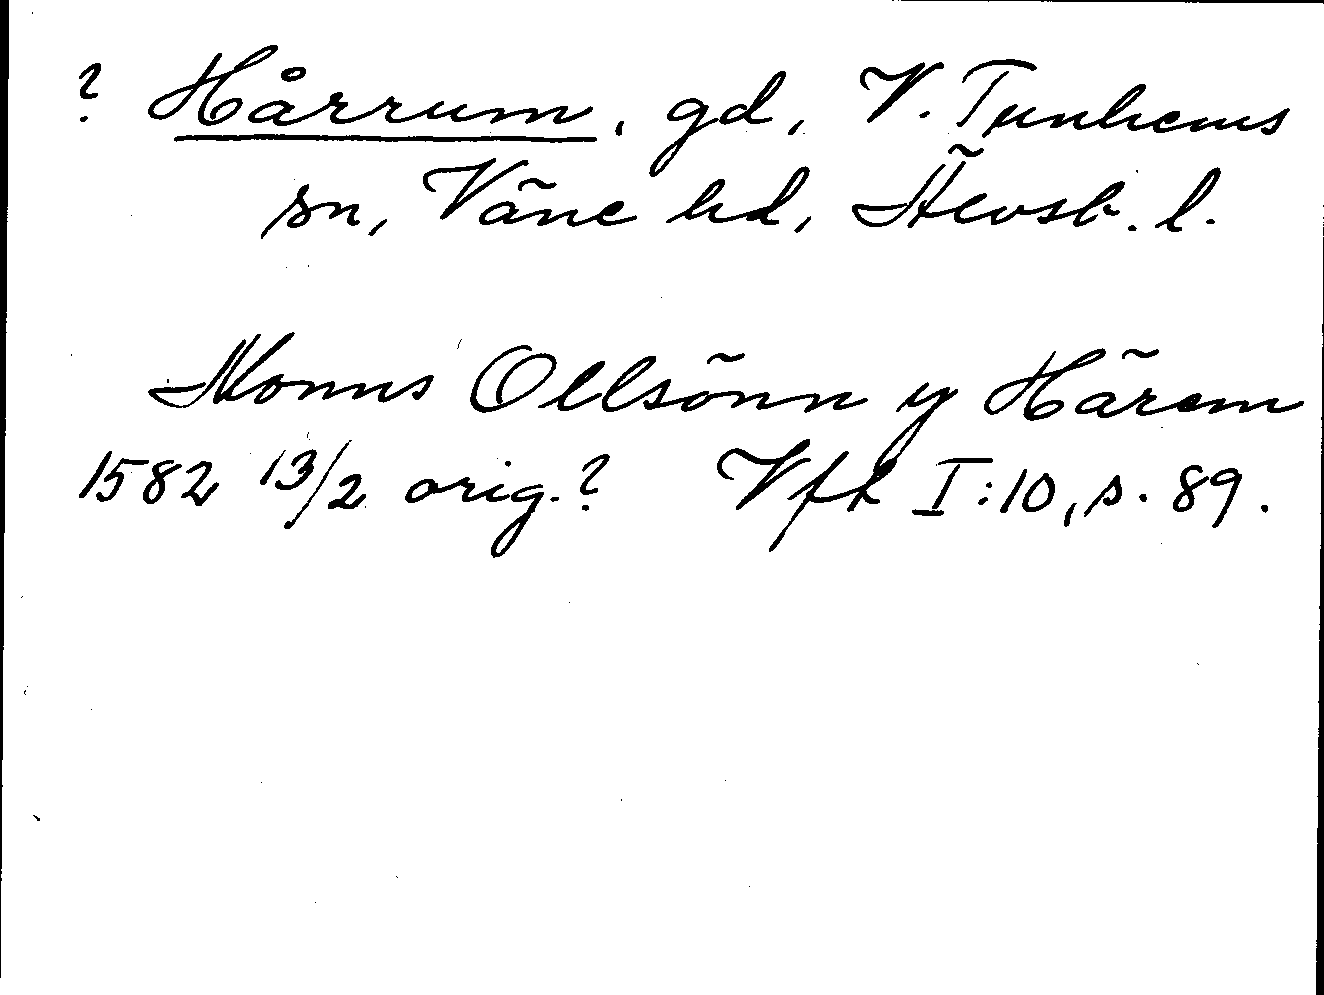 ? Hårrum, gd, V. Tunhems
sn, Väne hd, Älvsb. l.
Monns Ollsönn y Härem
1582 13/2 orig.? Vfh I:10, s. 89.